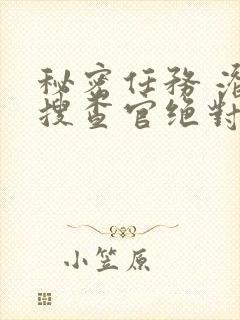 秘密任務 潛
搜查官绝對
小笠原